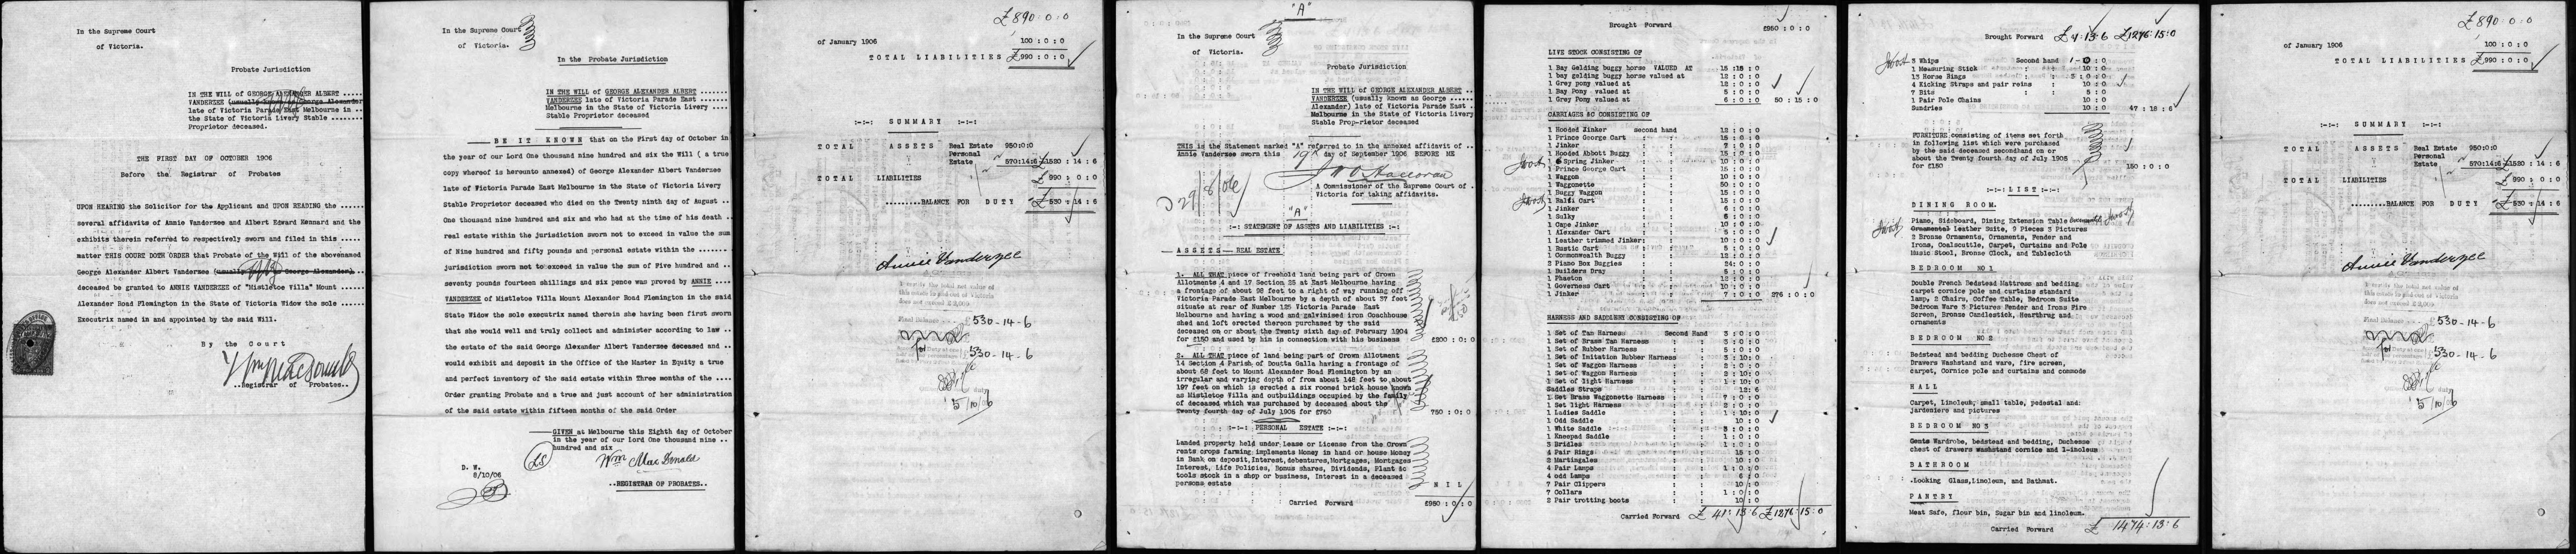 In the Supreme Court
of Victoria.
Probate Jurisdiction
IN THE WILL OF GEORGE ALEXANDER ALBERT ....
VANDERZEE (usually known as George Alexander
late of Victoria Parade East Melbourne in ..
the State of Victoria Livery Stable .......
Proprietor deceased.
THE FIRST DAY OF OCTOBER 1906
Before the Registrar of Probates
UPON HEARING the Solicitor for the Applicant and UPON READING the ......
several affidavits of Annie Vandersee and Albert Edward Kennard and the
exhibits therein referred to respectively sworn and filed in this .....
matter THIS COURT DOTH ORDER that Probate of the Will of the abovenamed
George Alexander Albert Vandersee (usually known as George Alexander).
deceased be granted to ANNIE VANDERZEE of "Mistletoe Villa" Mount .....
Alexander Road Flemington in the State of Victoria Widow the sole .....
Executrix named in and appointed by the said Will.
By the Court
..Registrar of Probates..
In the Supreme Court
of Victoria.
In the Probate Jurisdiction
IN THE WILL OF GEORGE ALEXANDER ALBERT ......
VANDERZEE late of Victoria Parade East ......
Melbourne in the State of Victoria Livery
Stable Proprietor deceased
BE IT KNOWN that on the First day of October in
the year of our Lord One thousand nine hundred and six the Will ( a true
copy whereof is hereunto annexed) of George Alexander Albert Vandersee
late of Victoria Parade East Melbourne in the State of Victoria Livery
Stable Proprietor deceased who died on the Twenty ninth day of August ..
One thousand nine hundred and six and who had at the time of his death ..
real estate within the jurisdiction sworn not to exceed in value the sum
of Nine hundred and fifty pounds and personal estate within the .......
jurisdiction sworn not to exceed in value the sum of Five hundred and ..
seventy pounds fourteen shillings and six pence was proved by ANNIE ....
VANDERZEE of Mistletoe Villa Mount Alexander Road Flemington in the said
State Widow the sole executrix named therein she having been first sworn
that she would well and truly collect and administer according to law ..
the estate of the said George Alexander Albert Vandersee deceased and ..
would exhibit and deposit in the Office of the Master in Equity a true
and perfect inventory of the said estate within Three months of the ....
Order granting Probate and a true and just account of her administration
of the said estate within fifteen months of the said Order
GIVEN at Melbourne this Eighth day of October
in the year of our Lord One thousand nine ..
hundred and six
LS
Wm Mac Donald
D. W.
8/10/06
..REGISTRAR OF PROBATES..
£890:0:0
of January 1906 100 : 0 : 0
TOTAL LIABILITIES £990 : 0 : 0
:-:-: SUMMARY :-:-:
TOTAL ASSETS Real Estate 950:0:0
Personal
Estate 570:14:6 £1520 : 14 : 6
TOTAL LIABILITIES £990 : 0 : 0
........BALANCE FOR DUTY £530 : 14 : 6
Annie Vanderzee
530-14-6
530-14-6
5/10/06
"A"
In the Supreme Court
of Victoria.
Probate Jurisdiction
IN THE WILL OF GEORGE ALEXANDER ALBERT .....
VANDERZEE (usually known as George ......
Alexander) late of Victoria Parade East .
Melbourne in the State of Victoria Livery
Stable Proprietor deceased
THIS is the Statement marked "A" referred to in the annexed affidavit of ..
Annie Vanderzee sworn this 19th day of September 1906 BEFORE ME
A Commissioner of the Supreme Court of .
Victoria for taking affidavits.
D 29/8/06
"A"
:-: STATEMENT OF ASSETS AND LIABILITIES :-:
ASSETS - REAL ESTATE
1. ALL THAT piece of freehold land being part of Crown
Allotments 4 and 17 Section 25 at East Melbourne having
a frontage of about 98 feet to a right of way running off
Victoria Parade East Melbourne by a depth of about 37 feet
situate at rear of Number 125 Victoria Parade East
Melbourne and having a wood and galvinised iron Coachhouse
shed and loft erected thereon purchased by the said
deceased on or about the Twenty sixth day of February 1904
for £150 and used by him in connection with his business £200 : 0 : 0
2. ALL THAT piece of land being part of Crown Allotment
14 Section 4 Parish of Doutta Galla having a frontage of
about 68 feet to Mount Alexander Road Flemington by an
irregular and varying depth of from about 148 feet to about
197 feet on which is erected a six roomed brick house known
as Mistletoe Villa and outbuildings occupied by the family
of deceased which was purchased by deceased about the
Twenty fourth day of July 1905 for £750 750 : 0 : 0
:-:-: PERSONAL ESTATE :-:-:
Landed property held under Lease or License from the Crown
rents crops farming implements Money in hand or house Money
in Bank on deposit, Interest, debentures, Mortgages, Mortgages
Interest, Life Policies, Bonus shares, Dividends, Plant &c
tools stock in a shop or business, Interest in a deceased
persons estate N I L
Carried Forward £950 : 0 : 0
Brought Forward £950 : 0 : 0
LIVE STOCK CONSISTING OF
1 Bay Gelding buggy horse VALUED AT 15 :15 : 0
1 bay gelding buggy horse valued at 12 : 0 : 0
1 Grey pony valued at 12 : 0 : 0
1 Bay Pony valued at 5 : 0 : 0
1 Grey Pony valued at 6 : 0 : 0 50 : 15 : 0
CARRIAGES &C CONSISTING OF
1 Hooded Jinker second hand 12 : 0 : 0
1 Prince George Cart : : 15 : 0 : 0
1 Jinker : : 7 : 0 : 0
1 Hooded Abbott Buggy : : 15 : 0 : 0
1 Spring Jinker : : 10 : 0 : 0
1 Prince George Cart : : 15 : 0 : 0
1 Waggon : : 10 : 0 : 0
1 Waggonette : : 50 : 0 : 0
1 Buggy Waggon : : 15 : 0 : 0
1 Ralli Cart : : 15 : 0 : 0
1 Jinker : : 6 : 0 : 0
1 Sulky : : 6 : 0 : 0
1 Cape Jinker : : 10 : 0 : 0
1 Alexander Cart : : 5 : 0 : 0
1 Leather trimmed Jinker: : 10 : 0 : 0
1 Rustic Cart : : 5 : 0 : 0
1 Commonwealth Buggy : : 12 : 0 : 0
2 Piano Box Buggies : : 24: 0 : 0
1 Builders Dray : : 5 : 0 : 0
1 Phaeton : : 12 : 0 : 0
1 Governess Cart : : 10 : 0 : 0
1 Jinker : : 7 : 0 : 0 276 : 0 : 0
HARNESS AND SADDLERY CONSISTING OF
1 Set of Tan Harness Second Hand 3 : 0 : 0
1 Set of Brass Tan Harness : : 3 : 0 : 0
1 Set of Rubber Harness : : 5 : 0 : 0
1 Set of Imitation Rubber Harness : : 3 : 10: 0
1 Set of Waggon Harness : : 2 : 0 : 0
1 Set of Waggon Harness : : 2 : 10: 0
1 Set of light Harness : : 1 : 10: 0
Saddles Straps : : 12 : 6
1 Set Brass Waggonette Harness : : 7 : 0 : 0
1 Set light Harness : : 2 : 0 : 0
1 Ladies Saddle : : 1 : 10: 0
1 Odd Saddle : : 10 : 0
1 White Saddle : : 3 : 0 : 0
1 Kneepad Saddle : : 1 : 0 : 0
3 Bridles : : 1 : 0 : 0
4 Pair Rings : : 15 : 0
2 Martingales : : 10 : 0
4 Pair Lamps : : 1 : 0 : 0
4 odd Lamps : : 6 : 0
7 Pair Clippers : : 10 : 0
7 Collars : : 1 : 0 : 0
2 Pair trotting boots : : 10 : 0
Carried Forward £41:13:6 £1276:15:0
Brought Forward £41:13:6 £1276:15:0
3 Whips Second hand 1-0 : 0
1 Measuring Stick : : 10 : 0
13 Horse Rings : : 3 : 0 : 0
4 Kicking Straps and pair reins : : 10 : 0
7 Bits : : 5 : 0
1 Pair Pole Chains 10 : 0
Sundries 10 : 0 47 : 18 : 6
FURNITURE consisting of items set forth
in following list which were purchased
by the said deceased secondhand on or
about the Twenty fourth day of July 1905
for £150 150 : 0 : 0
:-:-: LIST :-:-:
DINING ROOM.
Piano, Sideboard, Dining Extension Table
Ornamental Leather Suite, 9 Pieces 3 Pictures
2 Bronze Ornaments, Ornaments, Fender and
Irons, Coalscuttle, Carpet, Curtains and Pole
Music Stool, Bronze Clock, and Tablecloth
BEDROOM NO 1
Double French Bedstead Mattress and bedding
carpet cornice pole and curtains standard
lamp, 2 Chairs, Coffee Table, Bedroom Suite
Bedroom Ware 3 Pictures Fender and Irons Fire
Screen, Bronze Candlestick, Hearthrug and
ornaments
BEDROOM NO 2
Bedstead and bedding Duchesse Chest of
Drawers Washstand and ware, fire screen,
carpet, Cornice pole and curtains and commode
HALL
Carpet, Linoleum, small table, pedestal and
jardeniere and pictures
BEDROOM NO 3
Gents Wardrobe, bedstead and bedding, Duchesse
chest of drawers washstand cornice and linoleum
BATHROOM
Looking Glass, Linoleum, and Bathmat.
PANTRY
Meat Safe, flour bin, Sugar bin and linoleum.
Carried Forward £1474:13:6
£890:0:0
of January 1906 100 : 0 : 0
TOTAL LIABILITIES £990 : 0 : 0
:-:-: SUMMARY :-:-:
TOTAL ASSETS Real Estate 950:0:0
Personal
Estate 570:14:6 £1520 : 14 : 6
TOTAL LIABILITIES £990 : 0 : 0
........BALANCE FOR DUTY £530 : 14 : 6
Annie Vanderzee
530-14-6
530-14-6
5/10/06